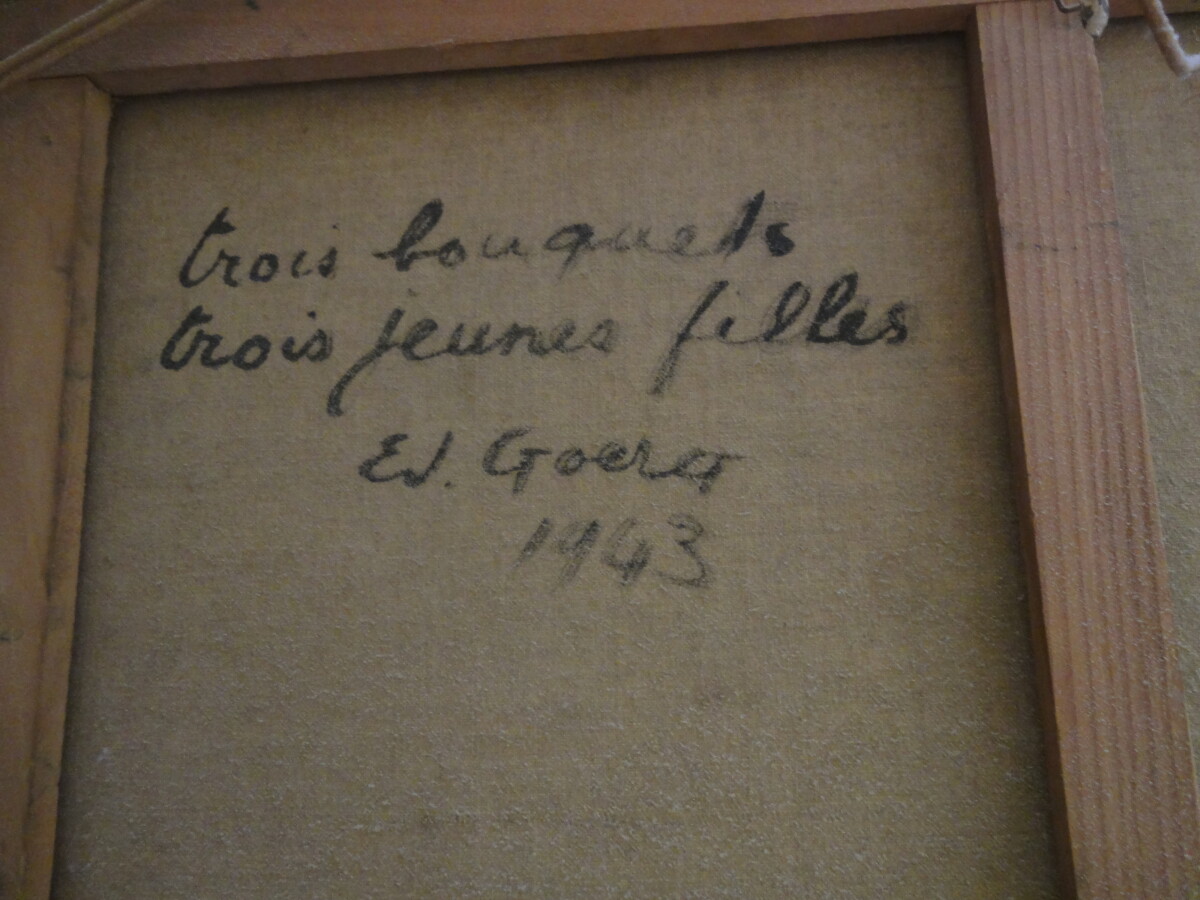 trois bouquets
trois jeunes filles
Ed. Goerg
1943